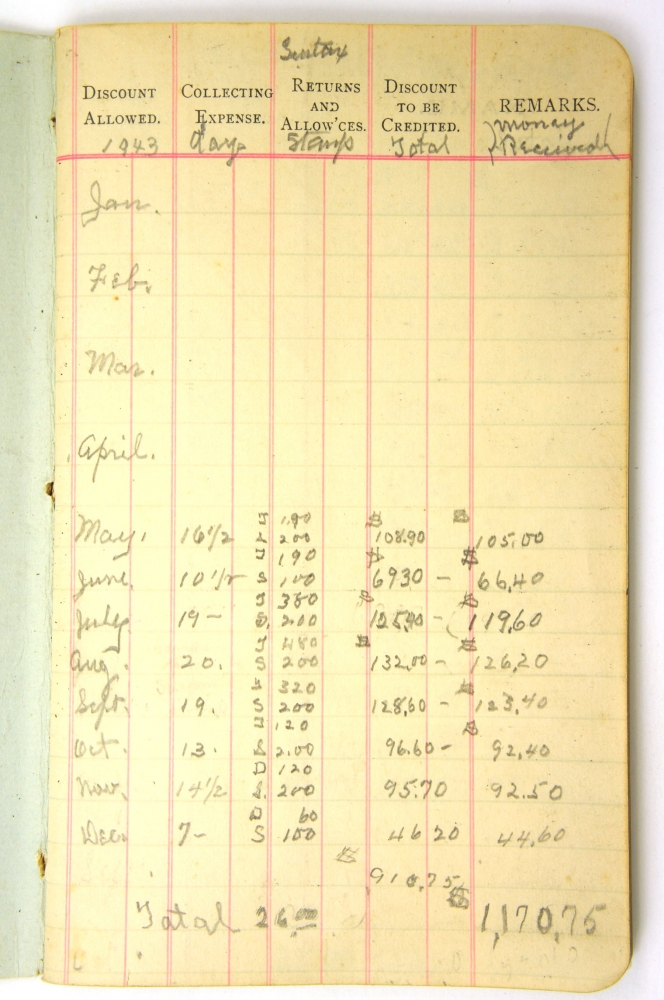 DISCOUNT ALLOWED. COLLECTING EXPENSE. RETURNS AND ALLOW'CES. DISCOUNT TO BE CREDITED. REMARKS.
1943 days Stamps Total Money Received
Jan.
Feb.
Mar.
April.
1.90 $ $
May. 16 1/2 2.00 108.90 105.00
J 1.90 $ $
June. 10 1/2 S 1.00 69 30 – 66.40
J 3.80 $ $
July 19 – S. 2.00 125.40 – 119.60
J 4.80 $ $
Aug. 20. S 2.00 132.00 – 126.20
3 20 $
Sept. 19. S 2.00 128.60 – 123.40
1 20 $
Oct. 13. S 2.00 96.60 – 92.40
D 1 20
Nov. 14 1/2 S. 2.00 95.70 92.50
D 60
Dec. 7 – S 1 00 46 20 44.60
$
910.75 $
Total 26 00 1,170.75